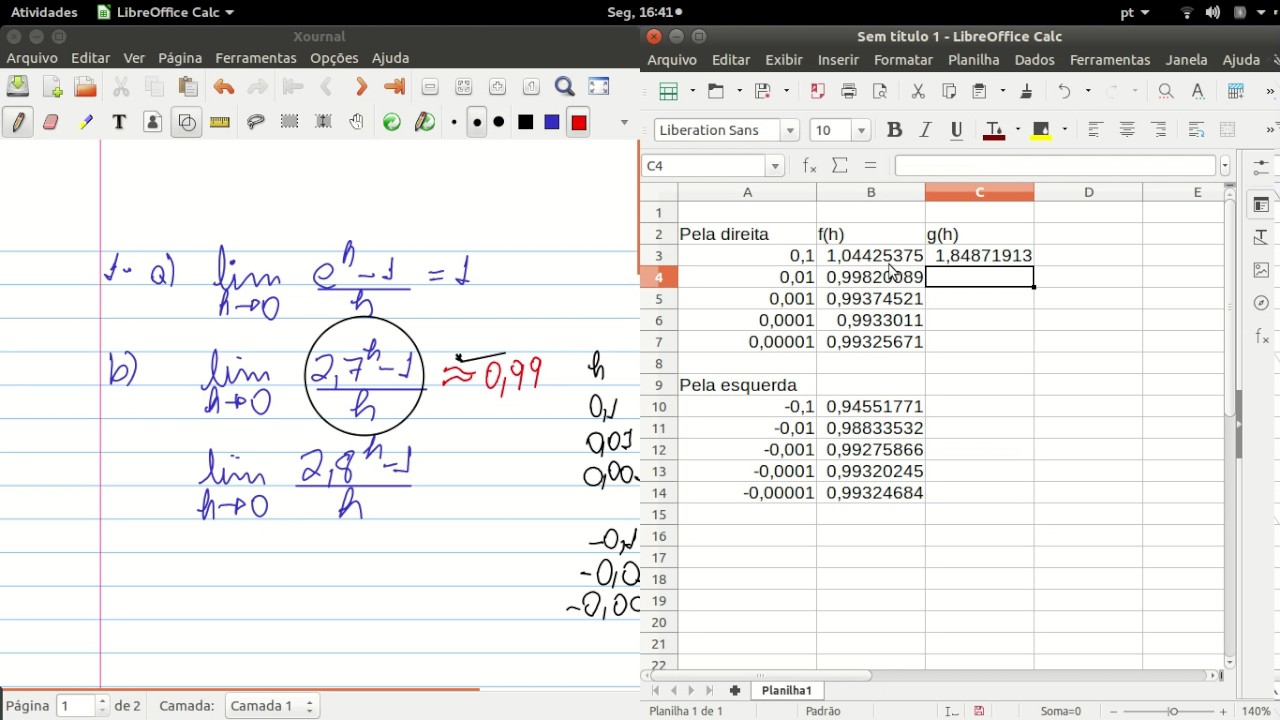 Atividades LibreOffice Calc Seg, 16:41 pt
Xournal
Arquivo Editar Ver Página Ferramentas Opções Ajuda
1- a) lim h→0 e^h-1/h = 1
b) lim h→0 2,7^h-1/h ≈ 0,99
lim h→0 2,8^h-1/h
h
0,1
0,01
0,00
-0,1
-0,0
-0,00
Página 1 de 2 Camada: Camada 1
Sem título 1 - LibreOffice Calc
Arquivo Editar Exibir Inserir Formatar Planilha Dados Ferramentas Janela Ajuda
Liberation Sans 10
C4
A B C D E
1
2 Pela direita f(h) g(h)
3 0,1 1,04425375 1,84871913
4 0,01 0,99820089
5 0,001 0,99374521
6 0,0001 0,9933011
7 0,00001 0,99325671
8
9 Pela esquerda
10 -0,1 0,94551771
11 -0,01 0,98833532
12 -0,001 0,99275866
13 -0,0001 0,99320245
14 -0,00001 0,99324684
15
16
17
18
19
20
21
22
Planilha1
Planilha 1 de 1 Padrão Soma=0 140%